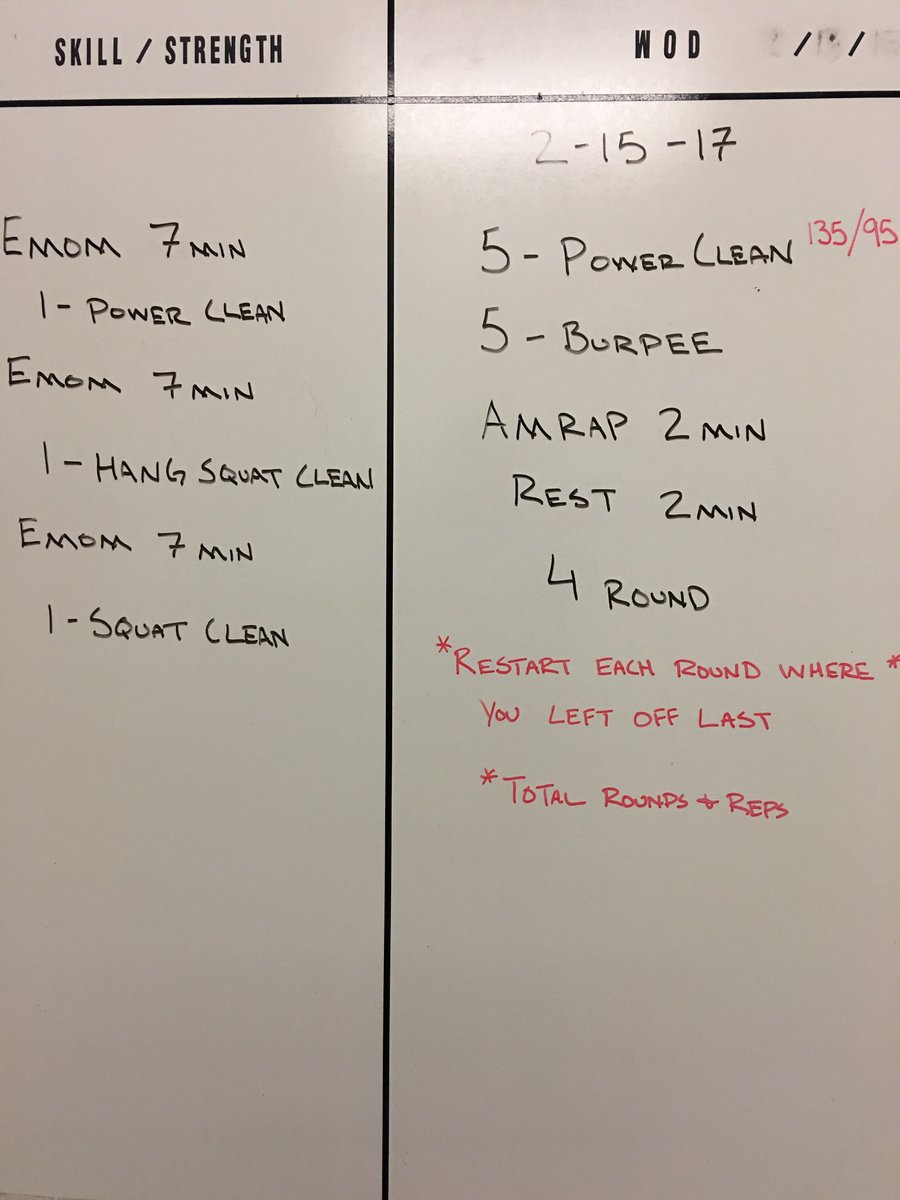 SKILL / STRENGTH
EMOM 7 MIN
1 - POWER CLEAN
EMOM 7 MIN
1 - HANG SQUAT CLEAN
EMOM 7 MIN
1 - SQUAT CLEAN
WOD / /
2-15-17
5 - POWER CLEAN 135/95
5 - BURPEE
AMRAP 2 MIN
REST 2 MIN
4 ROUND
*RESTART EACH ROUND WHERE *
YOU LEFT OFF LAST
*TOTAL ROUNDS + REPS